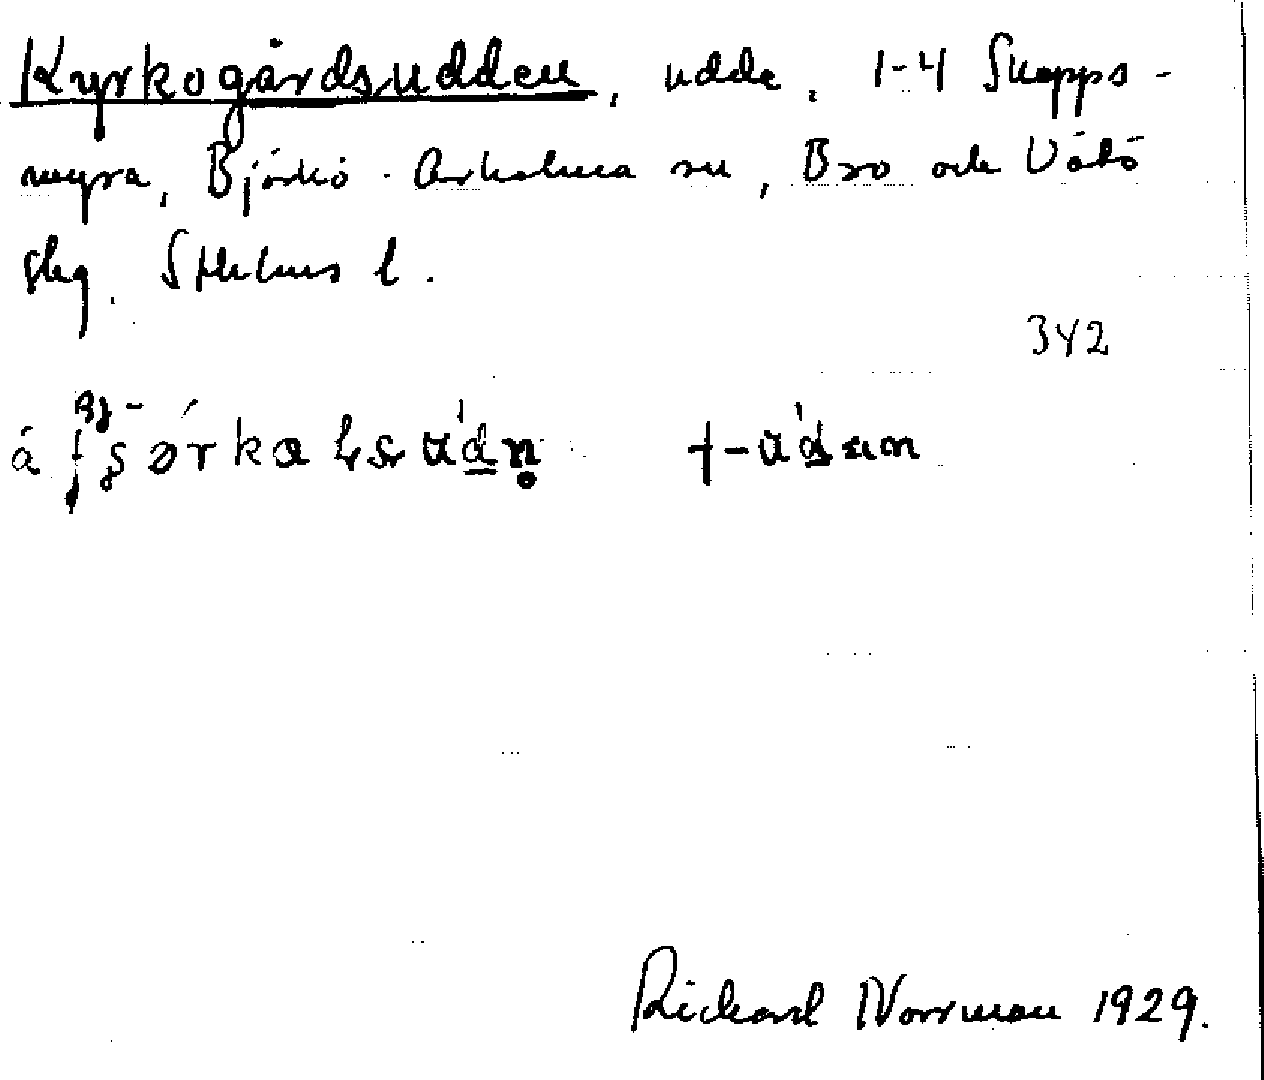 Kyrkogårdsudden, udde, 1-4 Skepps-
myra, Björkö-Arholma sn, Bro och Vätö
skg. Sthlms l.
342
Richard Norrman 1929.